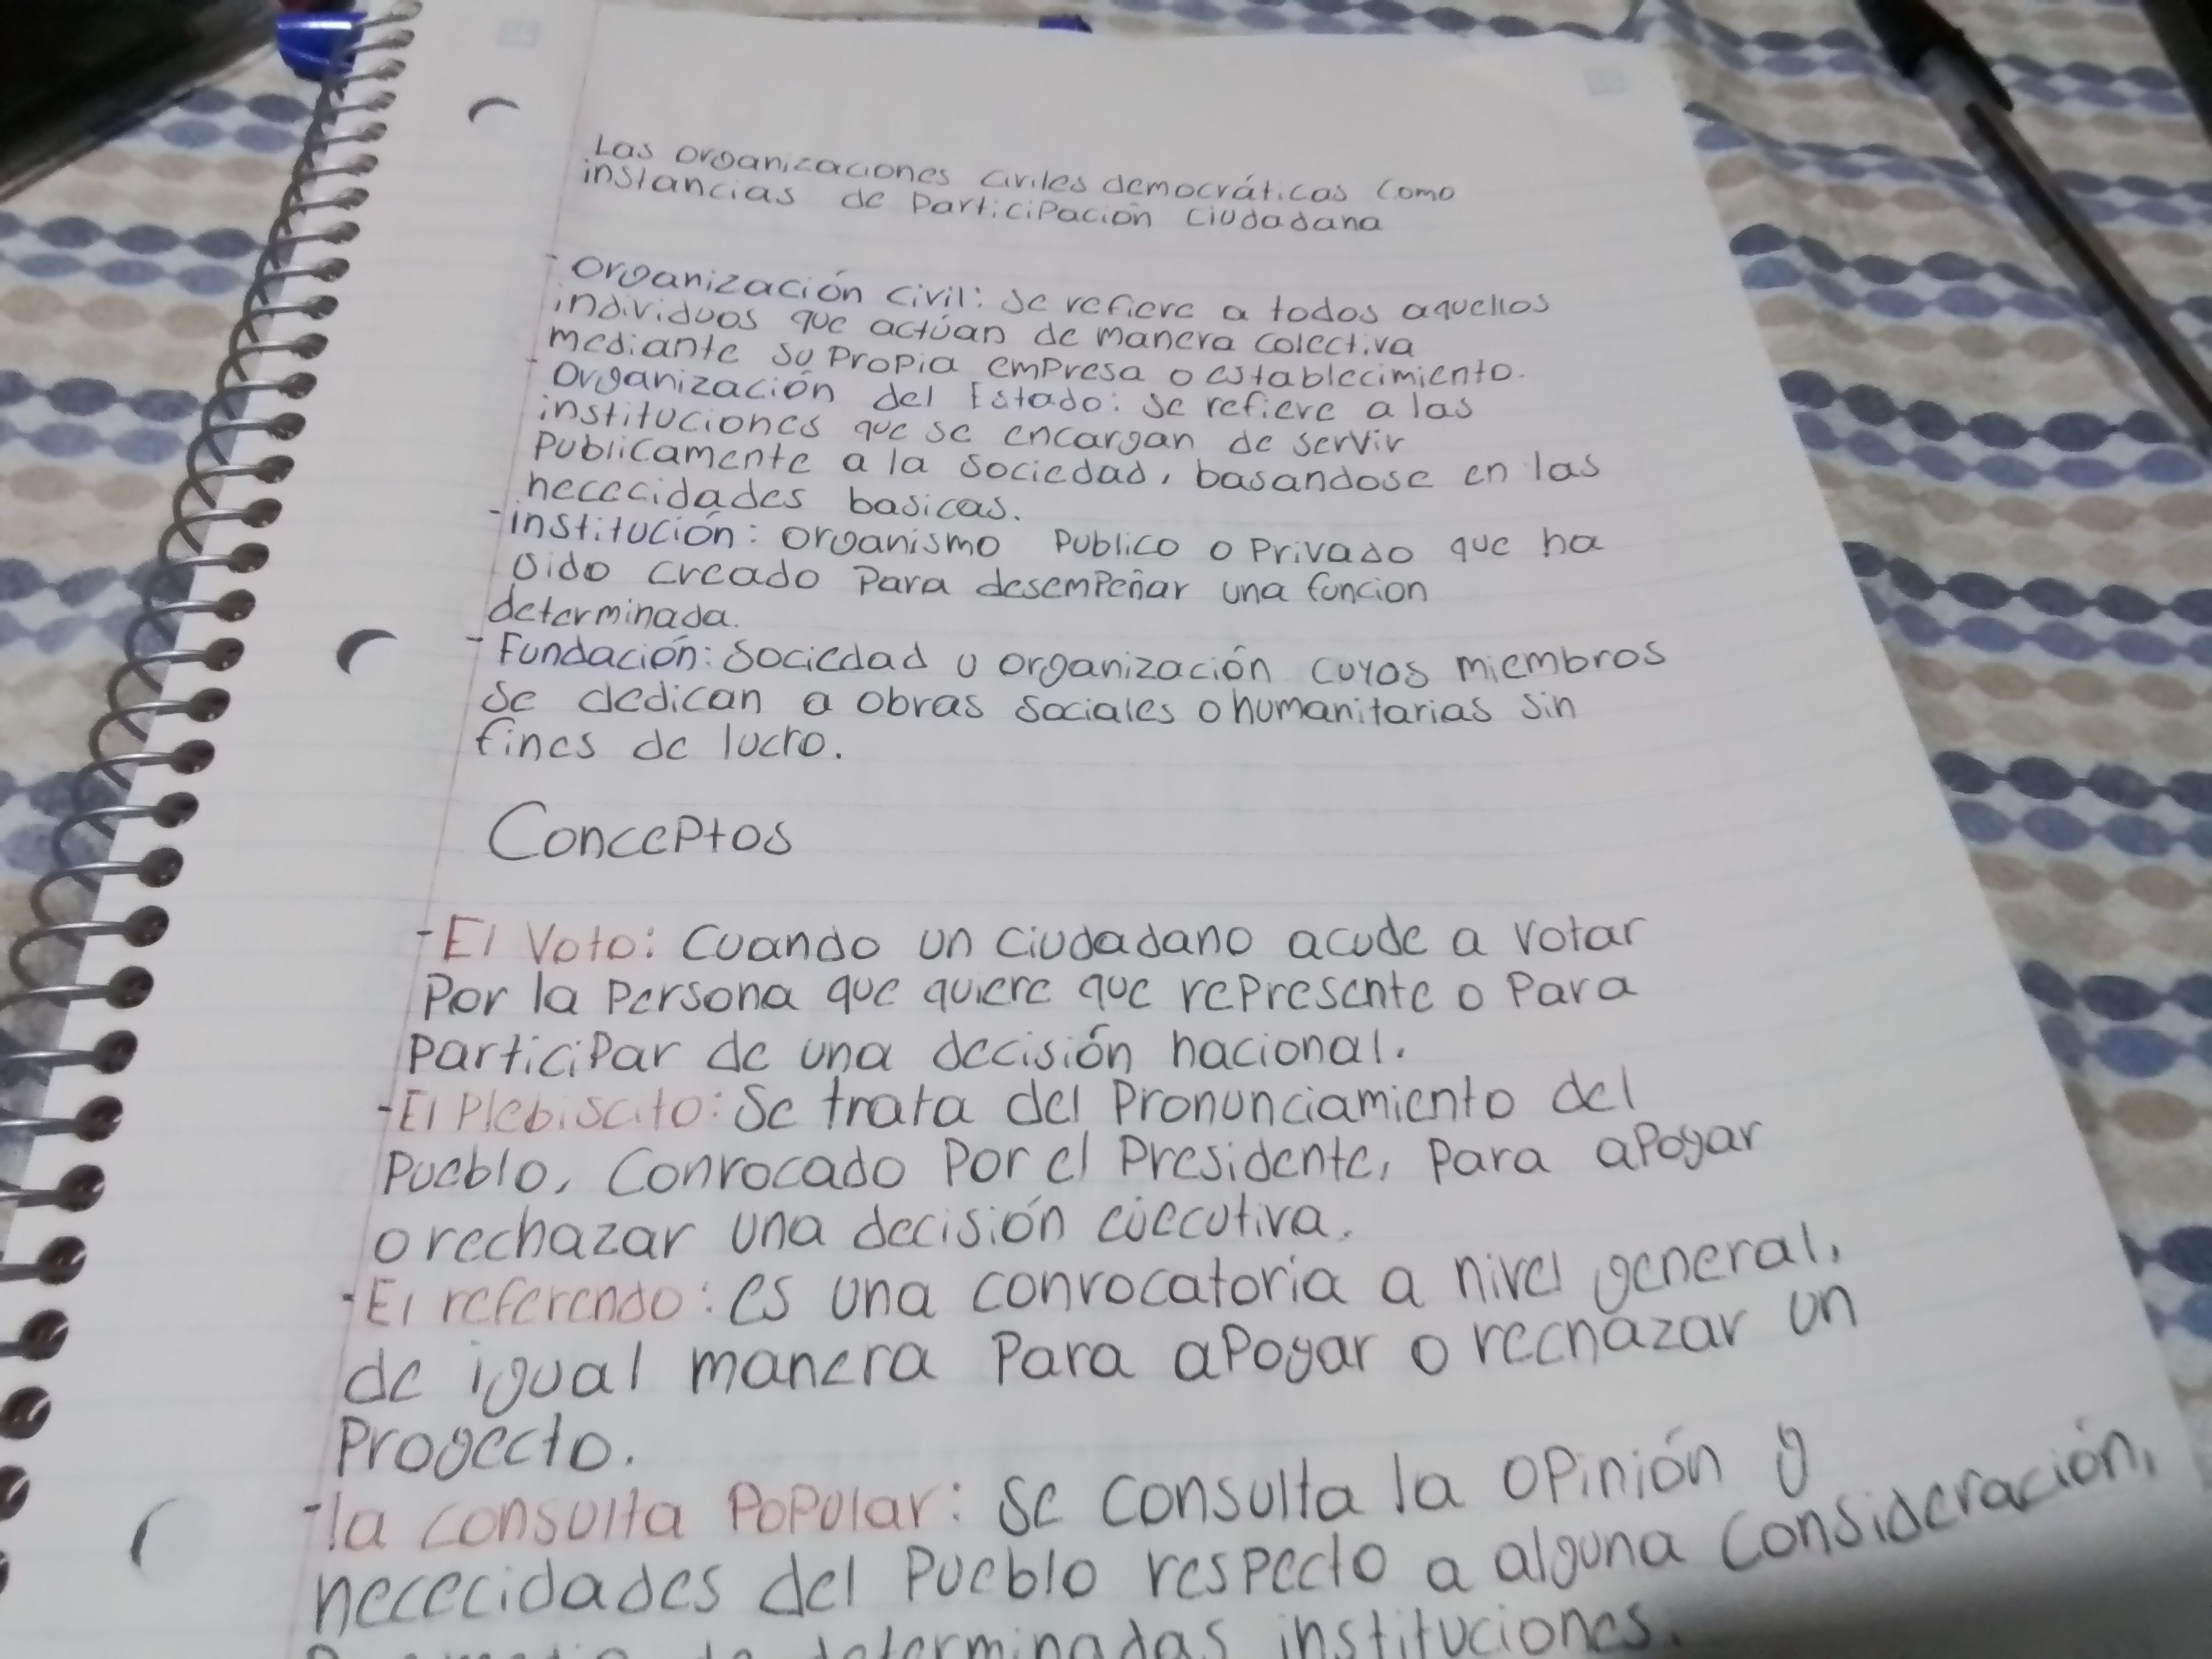 Las organizaciones civiles democráticas como
instancias de Participación Ciudadana
- Organización civil: se refiere a todos aquellos
individuos que actúan de manera colectiva
mediante su Propia empresa o establecimiento.
- Organización del Estado: se refiere a las
instituciones que se encargan de servir
Publicamente a la sociedad, basandose en las
nececidades basicas.
- institución: organismo Publico o Privado que ha
sido creado Para desempeñar una funcion
determinada.
- Fundación: Sociedad u organización cuyos miembros
se dedican a obras sociales o humanitarias sin
fines de lucro.
Conceptos
- El Voto: Cuando un ciudadano acude a votar
Por la Persona que quiere que represente o Para
Participar de una decisión nacional.
- El Plebiscito: Se trata del Pronunciamiento del
Pueblo, Convocado Por el Presidente, Para apoyar
o rechazar una decisión ejecutiva.
- El referendo: es una convocatoria a nivel general,
de igual manera Para apoyar o rechazar un
Proyecto.
- la consulta Popular: se consulta la opinión y
nececidades del Pueblo respecto a alguna consideración,
determinadas instituciones.